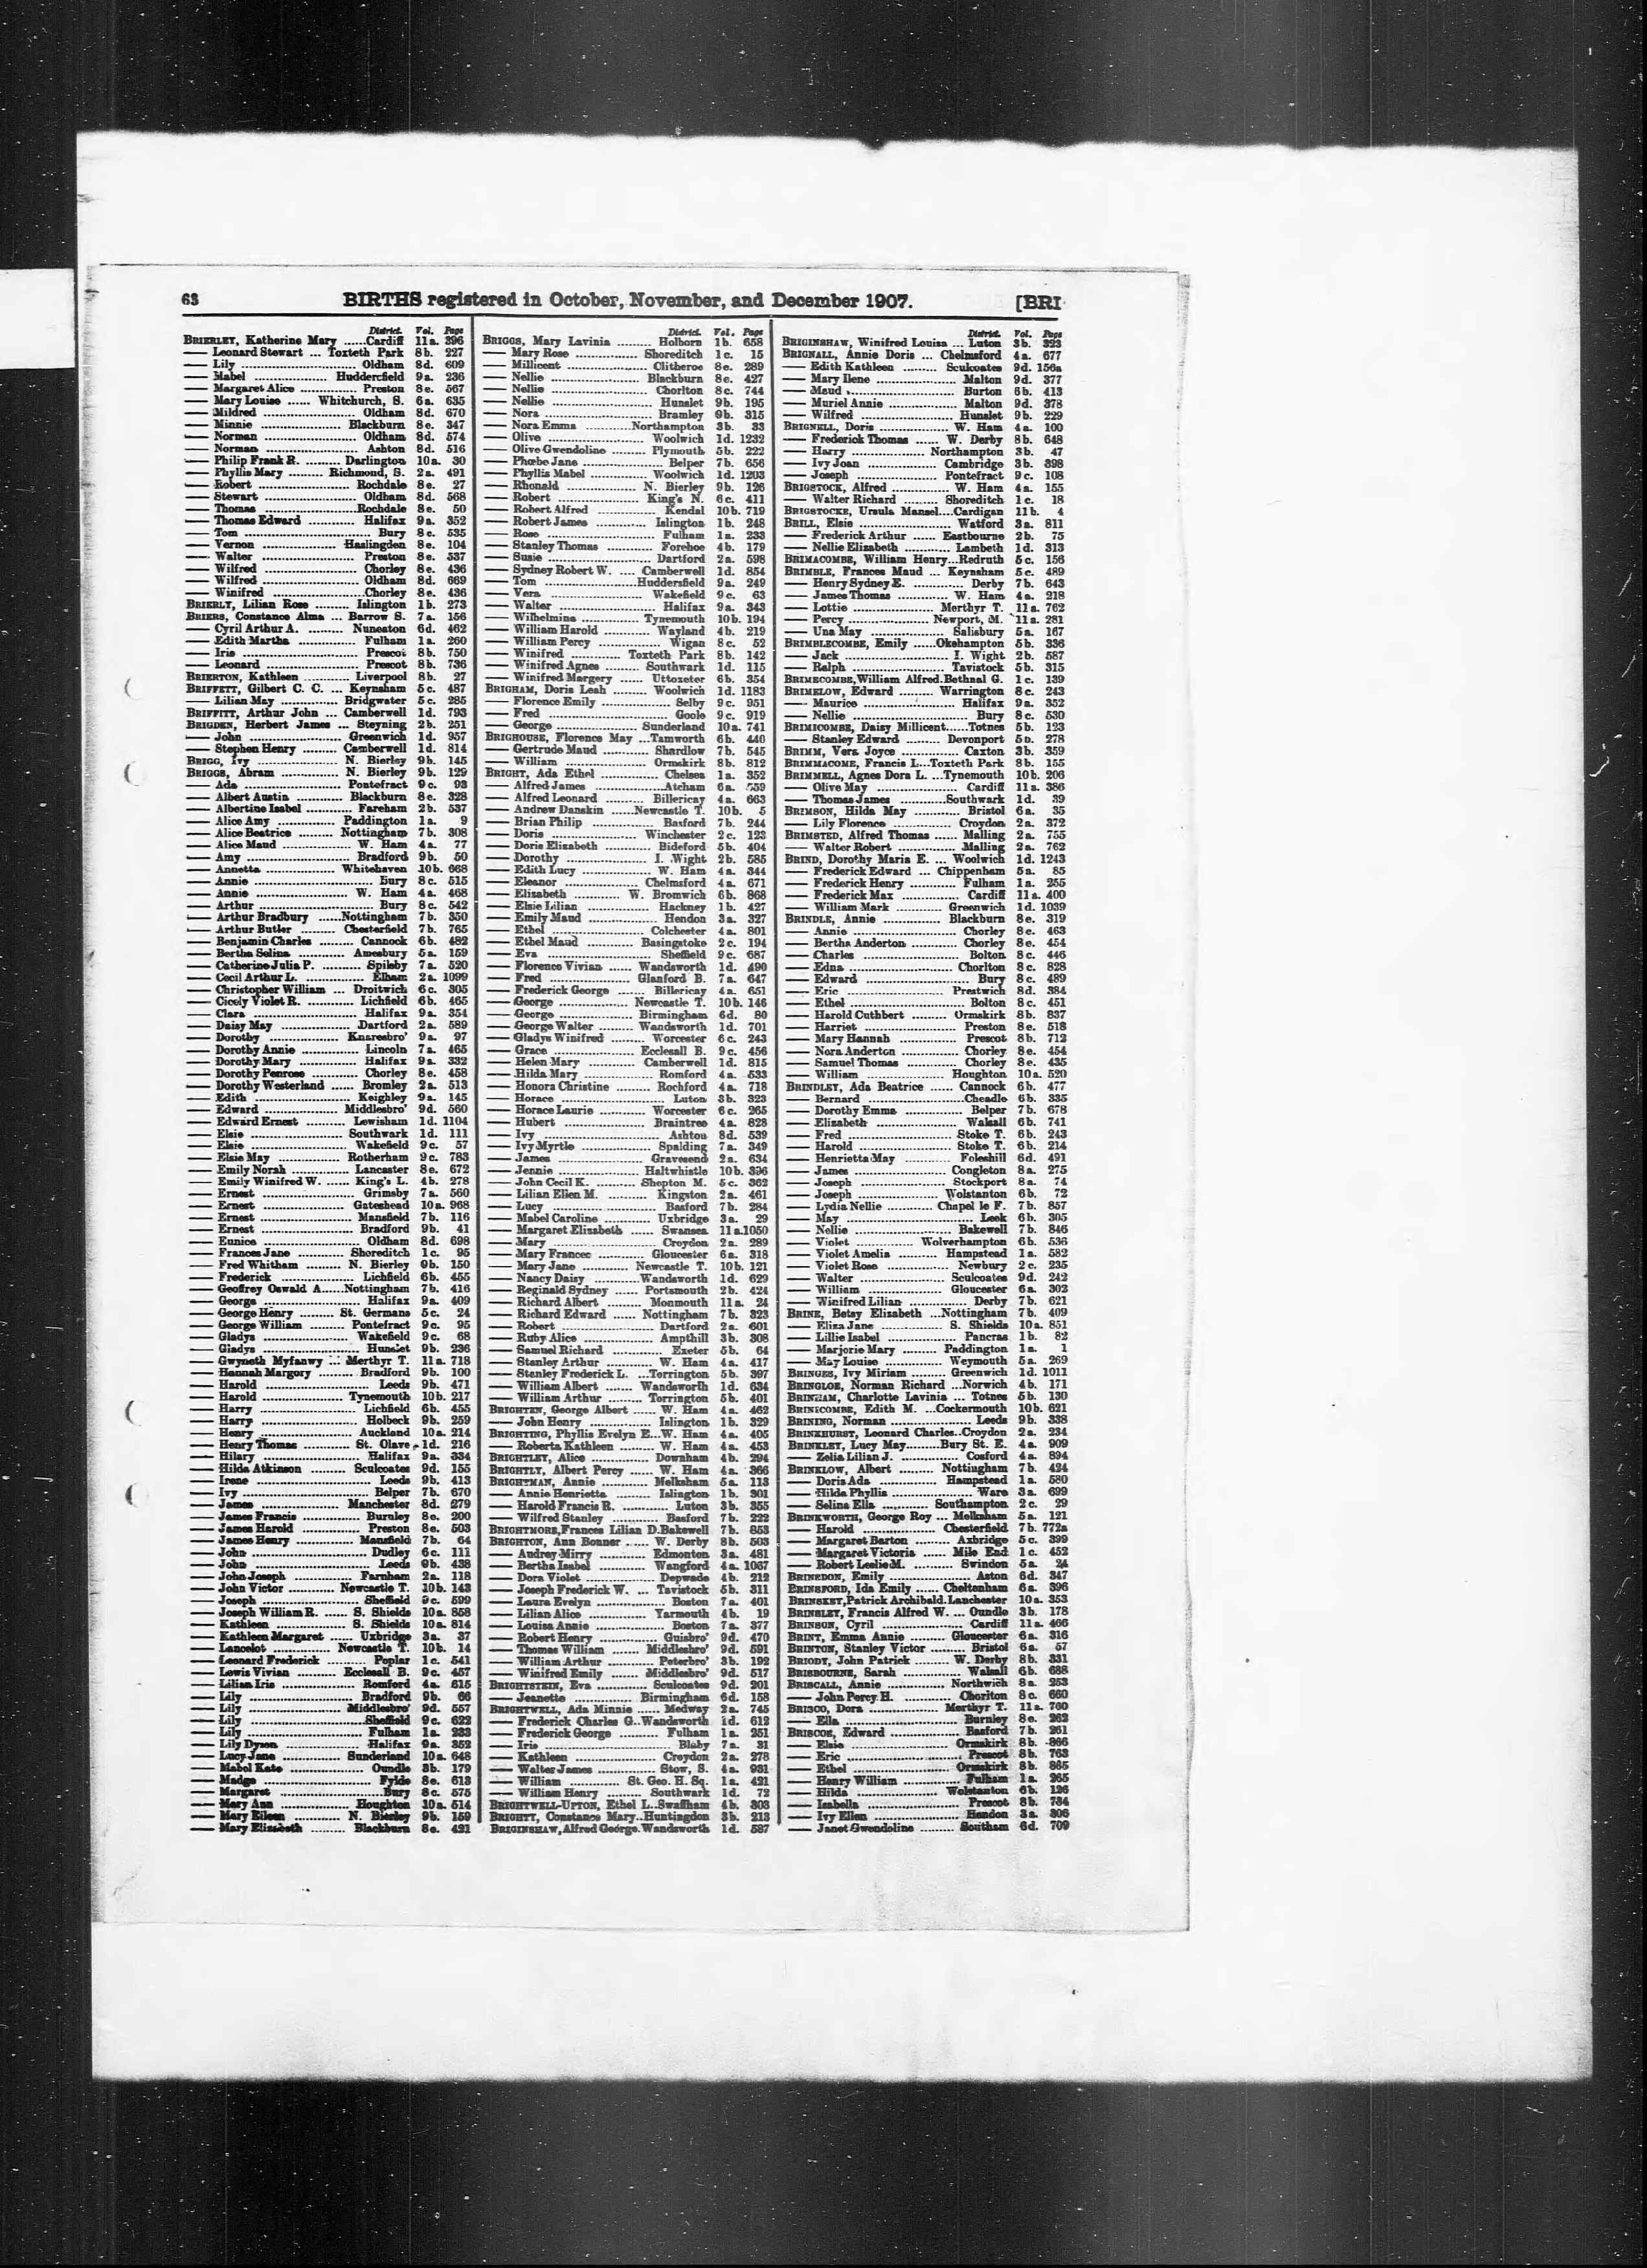 63 BIRTHS registered in October, November, and December 1907. [BRI
District. Vol. Page
BRIERLEY, Katherine Mary ......Cardiff 11a. 396
—— Leonard Stewart ... Toxteth Park 8b. 227
—— Lily ........ Oldham 8d. 609
—— Mabel ........ Huddersfield 9a. 236
—— Margaret Alice ........ Preston 8e. 567
—— Mary Louise ...... Whitchurch, S. 6a. 635
—— Mildred ........ Oldham 8d. 670
—— Minnie ........ Blackburn 8e. 347
—— Norman ........ Oldham 8d. 574
—— Norman ........ Ashton 8d. 516
—— Philip Frank R. ........ Darlington 10a. 30
—— Phyllis Mary ........ Richmond, S. 2a. 491
—— Robert ........ Rochdale 8e. 27
—— Stewart ........ Oldham 8d. 568
—— Thomas ........ Rochdale 8e. 50
—— Thomas Edward ........ Halifax 9a. 352
—— Tom ........ Bury 8c. 535
—— Vernon ........ Haslingden 8e. 104
—— Walter ........ Preston 8e. 537
—— Wilfred ........ Chorley 8e. 436
—— Wilfred ........ Oldham 8d. 669
—— Winifred ........ Chorley 8e. 436
BRIERLY, Lilian Rose ........ Islington 1b. 273
BRIERS, Constance Alma ... Barrow S. 7a. 156
—— Cyril Arthur A. ........ Nuneaton 6d. 462
—— Edith Martha ........ Fulham 1a. 260
—— Iris ........ Prescot 8b. 750
—— Leonard ........ Prescot 8b. 736
BRIERTON, Kathleen ........ Liverpool 8b. 27
BRIFFETT, Gilbert C. C. ... Keynsham 5c. 487
—— Lilian May ........ Bridgwater 5c. 285
BRIFFITT, Arthur John ... Camberwell 1d. 793
BRIGDEN, Herbert James ... Steyning 2b. 251
—— John ........ Greenwich 1d. 957
—— Stephen Henry ........ Camberwell 1d. 814
BRIGG, Ivy ........ N. Bierley 9b. 145
BRIGGS, Abram ........ N. Bierley 9b. 129
—— Ada ........ Pontefract 9c. 93
—— Albert Austin ........ Blackburn 8e. 328
—— Albertine Isabel ........ Fareham 2b. 537
—— Alice Amy ........ Paddington 1a. 9
—— Alice Beatrice ........ Nottingham 7b. 308
—— Alice Maud ........ W. Ham 4a. 77
—— Amy ........ Bradford 9b. 50
—— Annetta ........ Whitehaven 10b. 668
—— Annie ........ Bury 8c. 515
—— Annie ........ W. Ham 4a. 468
—— Arthur ........ Bury 8c. 542
—— Arthur Bradbury ......Nottingham 7b. 350
—— Arthur Butler ........ Chesterfield 7b. 765
—— Benjamin Charles ........ Cannock 6b. 482
—— Bertha Selina ........ Amesbury 5a. 159
—— Catherine Julia P. ........ Spilsby 7a. 520
—— Cecil Arthur L. ........ Elham 2a. 1099
—— Christopher William ... Droitwich 6c. 305
—— Cicely Violet R. ........ Lichfield 6b. 465
—— Clara ........ Halifax 9a. 354
—— Daisy May ........ Dartford 2a. 589
—— Dorothy ........ Knaresbro' 9a. 97
—— Dorothy Annie ........ Lincoln 7a. 465
—— Dorothy Mary ........ Halifax 9a. 332
—— Dorothy Penrose ........ Chorley 8e. 458
—— Dorothy Westerland ...... Bromley 2a. 513
—— Edith ........ Keighley 9a. 145
—— Edward ........ Middlesbro' 9d. 560
—— Edward Ernest ........ Lewisham 1d. 1104
—— Elsie ........ Southwark 1d. 111
—— Elsie ........ Wakefield 9c. 57
—— Elsie May ........ Rotherham 9c. 783
—— Emily Norah ........ Lancaster 8e. 672
—— Emily Winifred W. ...... King's L. 4b. 278
—— Ernest ........ Grimsby 7a. 560
—— Ernest ........ Gateshead 10a. 968
—— Ernest ........ Mansfield 7b. 116
—— Ernest ........ Bradford 9b. 41
—— Eunice ........ Oldham 8d. 698
—— Frances Jane ........ Shoreditch 1c. 95
—— Fred Whitham ........ N. Bierley 9b. 150
—— Frederick ........ Lichfield 6b. 455
—— Geoffrey Oswald A......Nottingham 7b. 416
—— George ........ Halifax 9a. 409
—— George Henry ...... St. Germans 5c. 24
—— George William ........ Pontefract 9c. 95
—— Gladys ........ Wakefield 9c. 68
—— Gladys ........ Hunslet 9b. 236
—— Gwyneth Myfanwy ... Merthyr T. 11a. 718
—— Hannah Margory ........ Bradford 9b. 100
—— Harold ........ Leeds 9b. 471
—— Harold ........ Tynemouth 10b. 217
—— Harry ........ Lichfield 6b. 455
—— Harry ........ Holbeck 9b. 259
—— Henry ........ Auckland 10a. 214
—— Henry Thomas ........ St. Olave 1d. 216
—— Hilary ........ Halifax 9a. 334
—— Hilda Atkinson ........ Sculcoates 9d. 155
—— Irene ........ Leeds 9b. 413
—— Ivy ........ Belper 7b. 670
—— James ........ Manchester 8d. 279
—— James Francis ........ Burnley 8e. 200
—— James Harold ........ Preston 8e. 503
—— James Henry ........ Mansfield 7b. 64
—— John ........ Dudley 6c. 111
—— John ........ Leeds 9b. 438
—— John Joseph ........ Farnham 2a. 118
—— John Victor ........ Newcastle T. 10b. 143
—— Joseph ........ Sheffield 9c. 599
—— Joseph William R. ...... S. Shields 10a. 858
—— Kathleen ........ S. Shields 10a. 814
—— Kathleen Margaret ...... Uxbridge 3a. 37
—— Lancelot ........ Newcastle T. 10b. 14
—— Leonard Frederick ........ Poplar 1c. 541
—— Lewis Vivian ........ Ecclesall B. 9c. 457
—— Lilian Iris ........ Romford 4a. 615
—— Lily ........ Bradford 9b. 66
—— Lily ........ Middlesbro' 9d. 557
—— Lily ........ Sheffield 9c. 622
—— Lily ........ Fulham 1a. 233
—— Lily Dyson ........ Halifax 9a. 352
—— Lucy Jane ........ Sunderland 10a. 648
—— Mabel Kate ........ Oundle 3b. 179
—— Madge ........ Fylde 8e. 613
—— Margaret ........ Bury 8c. 575
—— Mary Ann ........ Houghton 10a. 514
—— Mary Eileen ........ N. Bierley 9b. 159
—— Mary Elizabeth ........ Blackburn 8e. 421
District. Vol. Page
BRIGGS, Mary Lavinia ........ Holborn 1b. 658
—— Mary Rose ........ Shoreditch 1c. 15
—— Millicent ........ Clitheroe 8e. 289
—— Nellie ........ Blackburn 8e. 427
—— Nellie ........ Chorlton 8c. 744
—— Nellie ........ Hunslet 9b. 195
—— Nora ........ Bramley 9b. 315
—— Nora Emma ........Northampton 3b. 33
—— Olive ........ Woolwich 1d. 1232
—— Olive Gwendoline ........ Plymouth 5b. 222
—— Phœbe Jane ........ Belper 7b. 656
—— Phyllis Mabel ........ Woolwich 1d. 1203
—— Rhonald ........ N. Bierley 9b. 126
—— Robert ........ King's N. 6c. 411
—— Robert Alfred ........ Kendal 10b. 719
—— Robert James ........ Islington 1b. 248
—— Rose ........ Fulham 1a. 233
—— Stanley Thomas ........ Forehoe 4b. 179
—— Susie ........ Dartford 2a. 598
—— Sydney Robert W. .... Camberwell 1d. 854
—— Tom ........Huddersfield 9a. 249
—— Vera ........ Wakefield 9c. 63
—— Walter ........ Halifax 9a. 343
—— Wilhelmina ........ Tynemouth 10b. 194
—— William Harold ........ Wayland 4b. 219
—— William Percy ........ Wigan 8c. 52
—— Winifred ........ Toxteth Park 8b. 142
—— Winifred Agnes ........ Southwark 1d. 115
—— Winifred Margery ...... Uttoxeter 6b. 354
BRIGHAM, Doris Leah ........ Woolwich 1d. 1183
—— Florence Emily ........ Selby 9c. 951
—— Fred ........ Goole 9c. 919
—— George ........ Sunderland 10a. 741
BRIGHOUSE, Florence May ...Tamworth 6b. 440
—— Gertrude Maud ........ Shardlow 7b. 545
—— William ........ Ormskirk 8b. 812
BRIGHT, Ada Ethel ........ Chelsea 1a. 352
—— Alfred James ........Atcham 6a. 559
—— Alfred Leonard ........ Billericay 4a. 663
—— Andrew Danskin ......Newcastle T. 10b. 5
—— Brian Philip ........ Basford 7b. 244
—— Doris ........ Winchester 2c. 123
—— Doris Elizabeth ........ Bideford 5b. 404
—— Dorothy ........ I. Wight 2b. 585
—— Edith Lucy ........ W. Ham 4a. 344
—— Eleanor ........ Chelmsford 4a. 671
—— Elizabeth ........ W. Bromwich 6b. 868
—— Elsie Lilian ........ Hackney 1b. 427
—— Emily Maud ........ Hendon 3a. 327
—— Ethel ........ Colchester 4a. 801
—— Ethel Maud ........ Basingstoke 2c. 194
—— Eva ........ Sheffield 9c. 687
—— Florence Vivian ...... Wandsworth 1d. 490
—— Fred ........ Glanford B. 7a. 647
—— Frederick George ...... Billericay 4a. 651
—— George ........ Newcastle T. 10b. 146
—— George ........ Birmingham 6d. 80
—— George Walter ...... Wandsworth 1d. 701
—— Gladys Winifred ........ Worcester 6c. 243
—— Grace ........ Ecclesall B. 9c. 456
—— Helen Mary ........ Camberwell 1d. 815
—— Hilda Mary ........ Romford 4a. 533
—— Honora Christine ........ Rochford 4a. 718
—— Horace ........ Luton 3b. 323
—— Horace Laurie ........ Worcester 6c. 265
—— Hubert ........ Braintree 4a. 828
—— Ivy ........ Ashton 8d. 539
—— Ivy Myrtle ........ Spalding 7a. 349
—— James ........ Gravesend 2a. 634
—— Jennie ........ Haltwhistle 10b. 396
—— John Cecil K. ........ Shepton M. 5c. 362
—— Lilian Ellen M. ........ Kingston 2a. 461
—— Lucy ........ Basford 7b. 284
—— Mabel Caroline ........ Uxbridge 3a. 29
—— Margaret Elizabeth ...... Swansea 11a. 1050
—— Mary ........ Croydon 2a. 289
—— Mary Frances ........ Gloucester 6a. 318
—— Mary Jane ........ Newcastle T. 10b. 121
—— Nancy Daisy ........Wandsworth 1d. 629
—— Reginald Sydney ...... Portsmouth 2b. 424
—— Richard Albert ........ Monmouth 11a. 24
—— Richard Edward ........ Nottingham 7b. 323
—— Robert ........ Dartford 2a. 601
—— Ruby Alice ........ Ampthill 3b. 308
—— Samuel Richard ........ Exeter 5b. 64
—— Stanley Arthur ........ W. Ham 4a. 417
—— Stanley Frederick L. ...Torrington 5b. 397
—— William Albert ...... Wandsworth 1d. 634
—— William Arthur ........ Torrington 5b. 401
BRIGHTEN, George Albert ...... W. Ham 4a. 462
—— John Henry ........ Islington 1b. 329
BRIGHTING, Phyllis Evelyn E...W. Ham 4a. 405
—— Roberta Kathleen ........ W. Ham 4a. 453
BRIGHTLEY, Alice ........ Downham 4b. 294
BRIGHTLY, Albert Percy ...... W. Ham 4a. 366
BRIGHTMAN, Annie ........ Melksham 5a. 113
—— Annie Henrietta ........ Islington 1b. 301
—— Harold Francis R. ........ Luton 3b. 355
—— Wilfred Stanley ........ Basford 7b. 222
BRIGHTMORE, Frances Lilian D. Bakewell 7b. 853
BRIGHTON, Ann Bonner ...... W. Derby 8b. 503
—— Audrey Mirry ........ Edmonton 3a. 481
—— Bertha Isabel ........ Wangford 4a. 1087
—— Dora Violet ........ Depwade 4b. 212
—— Joseph Frederick W. ... Tavistock 5b. 311
—— Laura Evelyn ........ Boston 7a. 401
—— Lilian Alice ........ Yarmouth 4b. 19
—— Louisa Annie ........ Boston 7a. 377
—— Robert Henry ........ Guisbro' 9d. 470
—— Thomas William ...... Middlesbro' 9d. 591
—— William Arthur ........ Peterbro' 3b. 192
—— Winifred Emily ...... Middlesbro' 9d. 517
BRIGHTSTEIN, Eva ........ Sculcoates 9d. 201
—— Jeanette ........ Birmingham 6d. 158
BRIGHTWELL, Ada Minnie ...... Medway 2a. 745
—— Frederick Charles G..Wandsworth 1d. 612
—— Frederick George ........ Fulham 1a. 251
—— Iris ........ Blaby 7a. 31
—— Kathleen ........ Croydon 2a. 278
—— Walter James ........ Stow, S. 4a. 931
—— William ........ St. Geo. H. Sq. 1a. 421
—— William Henry ........ Southwark 1d. 72
BRIGHTWELL-UPTON, Ethel L..Swaffham 4b. 303
BRIGHTY, Constance Mary..Huntingdon 3b. 213
BRIGINSHAW, Alfred George. Wandsworth 1d. 587
District. Vol. Page
BRIGINSHAW, Winifred Louisa ... Luton 3b. 323
BRIGNALL, Annie Doris ... Chelmsford 4a. 677
—— Edith Kathleen ........ Sculcoates 9d. 156a
—— Mary Ilene ........ Malton 9d. 377
—— Maud ........ Burton 6b. 413
—— Muriel Annie ........ Malton 9d. 378
—— Wilfred ........ Hunslet 9b. 229
BRIGNELL, Doris ........ W. Ham 4a. 100
—— Frederick Thomas ...... W. Derby 8b. 648
—— Harry ........ Northampton 3b. 47
—— Ivy Joan ........ Cambridge 3b. 398
—— Joseph ........ Pontefract 9c. 108
BRIGSTOCK, Alfred ........ W. Ham 4a. 155
—— Walter Richard ........ Shoreditch 1c. 18
BRIGSTOCKE, Ursula Mansel....Cardigan 11b. 4
BRILL, Elsie ........ Watford 3a. 811
—— Frederick Arthur ...... Eastbourne 2b. 75
—— Nellie Elizabeth ........ Lambeth 1d. 313
BRIMACOMBE, William Henry...Redruth 5c. 156
BRIMBLE, Frances Maud ... Keynsham 5c. 489
—— Henry Sydney E. ........ Derby 7b. 643
—— James Thomas ........ W. Ham 4a. 218
—— Lottie ........ Merthyr T. 11a. 762
—— Percy ........ Newport, M. 11a. 281
—— Una May ........ Salisbury 5a. 167
BRIMBLECOMBE, Emily ......Okehampton 5b. 336
—— Jack ........ I. Wight 2b. 587
—— Ralph ........ Tavistock 5b. 315
BRIMECOMBE, William Alfred. Bethnal G. 1c. 139
BRIMELOW, Edward ........ Warrington 8c. 243
—— Maurice ........ Halifax 9a. 352
—— Nellie ........ Bury 8c. 530
BRIMICOMBE, Daisy Millicent......Totnes 5b. 123
—— Stanley Edward ........ Devonport 5b. 278
BRIMM, Vera Joyce ........ Caxton 3b. 359
BRIMMACOME, Francis L...Toxteth Park 8b. 155
BRIMMELL, Agnes Dora L. ...Tynemouth 10b. 206
—— Olive May ........ Cardiff 11a. 386
—— Thomas James ........Southwark 1d. 39
BRIMSON, Hilda May ........ Bristol 6a. 35
—— Lily Florence ........ Croydon 2a. 372
BRIMSTED, Alfred Thomas ...... Malling 2a. 755
—— Walter Robert ........ Malling 2a. 762
BRIND, Dorothy Maria E. ... Woolwich 1d. 1243
—— Frederick Edward ... Chippenham 5a. 85
—— Frederick Henry ........ Fulham 1a. 255
—— Frederick Max ........ Cardiff 11a. 400
—— William Mark ........ Greenwich 1d. 1039
BRINDLE, Annie ........ Blackburn 8e. 319
—— Annie ........ Chorley 8e. 463
—— Bertha Anderton ........ Chorley 8e. 454
—— Charles ........ Bolton 8c. 446
—— Edna ........ Chorlton 8c. 828
—— Edward ........ Bury 8c. 489
—— Eric ........ Prestwich 8d. 384
—— Ethel ........ Bolton 8c. 451
—— Harold Cuthbert ........ Ormskirk 8b. 837
—— Harriet ........ Preston 8e. 518
—— Mary Hannah ........ Prescot 8b. 712
—— Nora Anderton ........ Chorley 8e. 454
—— Samuel Thomas ........ Chorley 8e. 435
—— William ........ Houghton 10a. 520
BRINDLEY, Ada Beatrice ...... Cannock 6b. 477
—— Bernard ........ Cheadle 6b. 335
—— Dorothy Emma ........ Belper 7b. 678
—— Elizabeth ........ Walsall 6b. 741
—— Fred ........ Stoke T. 6b. 243
—— Harold ........ Stoke T. 6b. 214
—— Henrietta May ........ Foleshill 6d. 491
—— James ........ Congleton 8a. 275
—— Joseph ........ Stockport 8a. 74
—— Joseph ........ Wolstanton 6b. 72
—— Lydia Nellie ........ Chapel le F. 7b. 857
—— May ........ Leek 6b. 305
—— Nellie ........ Bakewell 7b. 846
—— Violet ........ Wolverhampton 6b. 536
—— Violet Amelia ........ Hampstead 1a. 582
—— Violet Rose ........ Newbury 2c. 235
—— Walter ........ Sculcoates 9d. 242
—— William ........ Gloucester 6a. 302
—— Winifred Lilian ........ Derby 7b. 621
BRINE, Betsy Elizabeth ...Nottingham 7b. 409
—— Eliza Jane ........ S. Shields 10a. 851
—— Lillie Isabel ........ Pancras 1b. 82
—— Marjorie Mary ........ Paddington 1a. 1
—— May Louise ........ Weymouth 5a. 269
BRINGES, Ivy Miriam ........ Greenwich 1d. 1011
BRINGLOE, Norman Richard ...Norwich 4b. 171
BRINHAM, Charlotte Lavinia ... Totnes 5b. 130
BRINICOMBE, Edith M. ...Cockermouth 10b. 621
BRINING, Norman ........ Leeds 9b. 338
BRINKHURST, Leonard Charles..Croydon 2a. 234
BRINKLEY, Lucy May........Bury St. E. 4a. 909
—— Zelia Lilian J. ........ Cosford 4a. 894
BRINKLOW, Albert ........ Nottingham 7b. 424
—— Doris Ada ........ Hampstead 1a. 580
—— Hilda Phyllis ........ Ware 3a. 699
—— Selina Ella ........ Southampton 2c. 29
BRINKWORTH, George Roy ... Melksham 5a. 121
—— Harold ........ Chesterfield 7b. 772a
—— Margaret Barton ........ Axbridge 5c. 399
—— Margaret Victoria ...... Mile End 1c. 452
—— Robert Leslie M. ........ Swindon 5a. 24
BRINEDON, Emily ........ Aston 6d. 347
BRINSFORD, Ida Emily ...... Cheltenham 6a. 396
BRINSKEY, Patrick Archibald. Lanchester 10a. 353
BRINSLEY, Francis Alfred W. ... Oundle 3b. 178
BRINSON, Cyril ........ Cardiff 11a. 466
BRINT, Emma Annie ........ Gloucester 6a. 316
BRINTON, Stanley Victor ........ Bristol 6a. 57
BRIODY, John Patrick ........ W. Derby 8b. 331
BRISBOURNE, Sarah ........ Walsall 6b. 688
BRISCALL, Annie ........ Northwich 8a. 253
—— John Percy H. ........ Chorlton 8c. 660
BRISCO, Dora ........ Merthyr T. 11a. 760
—— Ella ........ Burnley 8e. 262
BRISCOE, Edward ........ Basford 7b. 261
—— Elsie ........ Ormskirk 8b. 866
—— Eric ........ Prescot 8b. 763
—— Ethel ........ Ormskirk 8b. 865
—— Henry William ........ Fulham 1a. 265
—— Hilda ........ Wolstanton 6b. 126
—— Isabella ........ Prescot 8b. 734
—— Ivy Ellen ........ Hendon 3a. 306
—— Janet Gwendoline ........ Southam 6d. 709